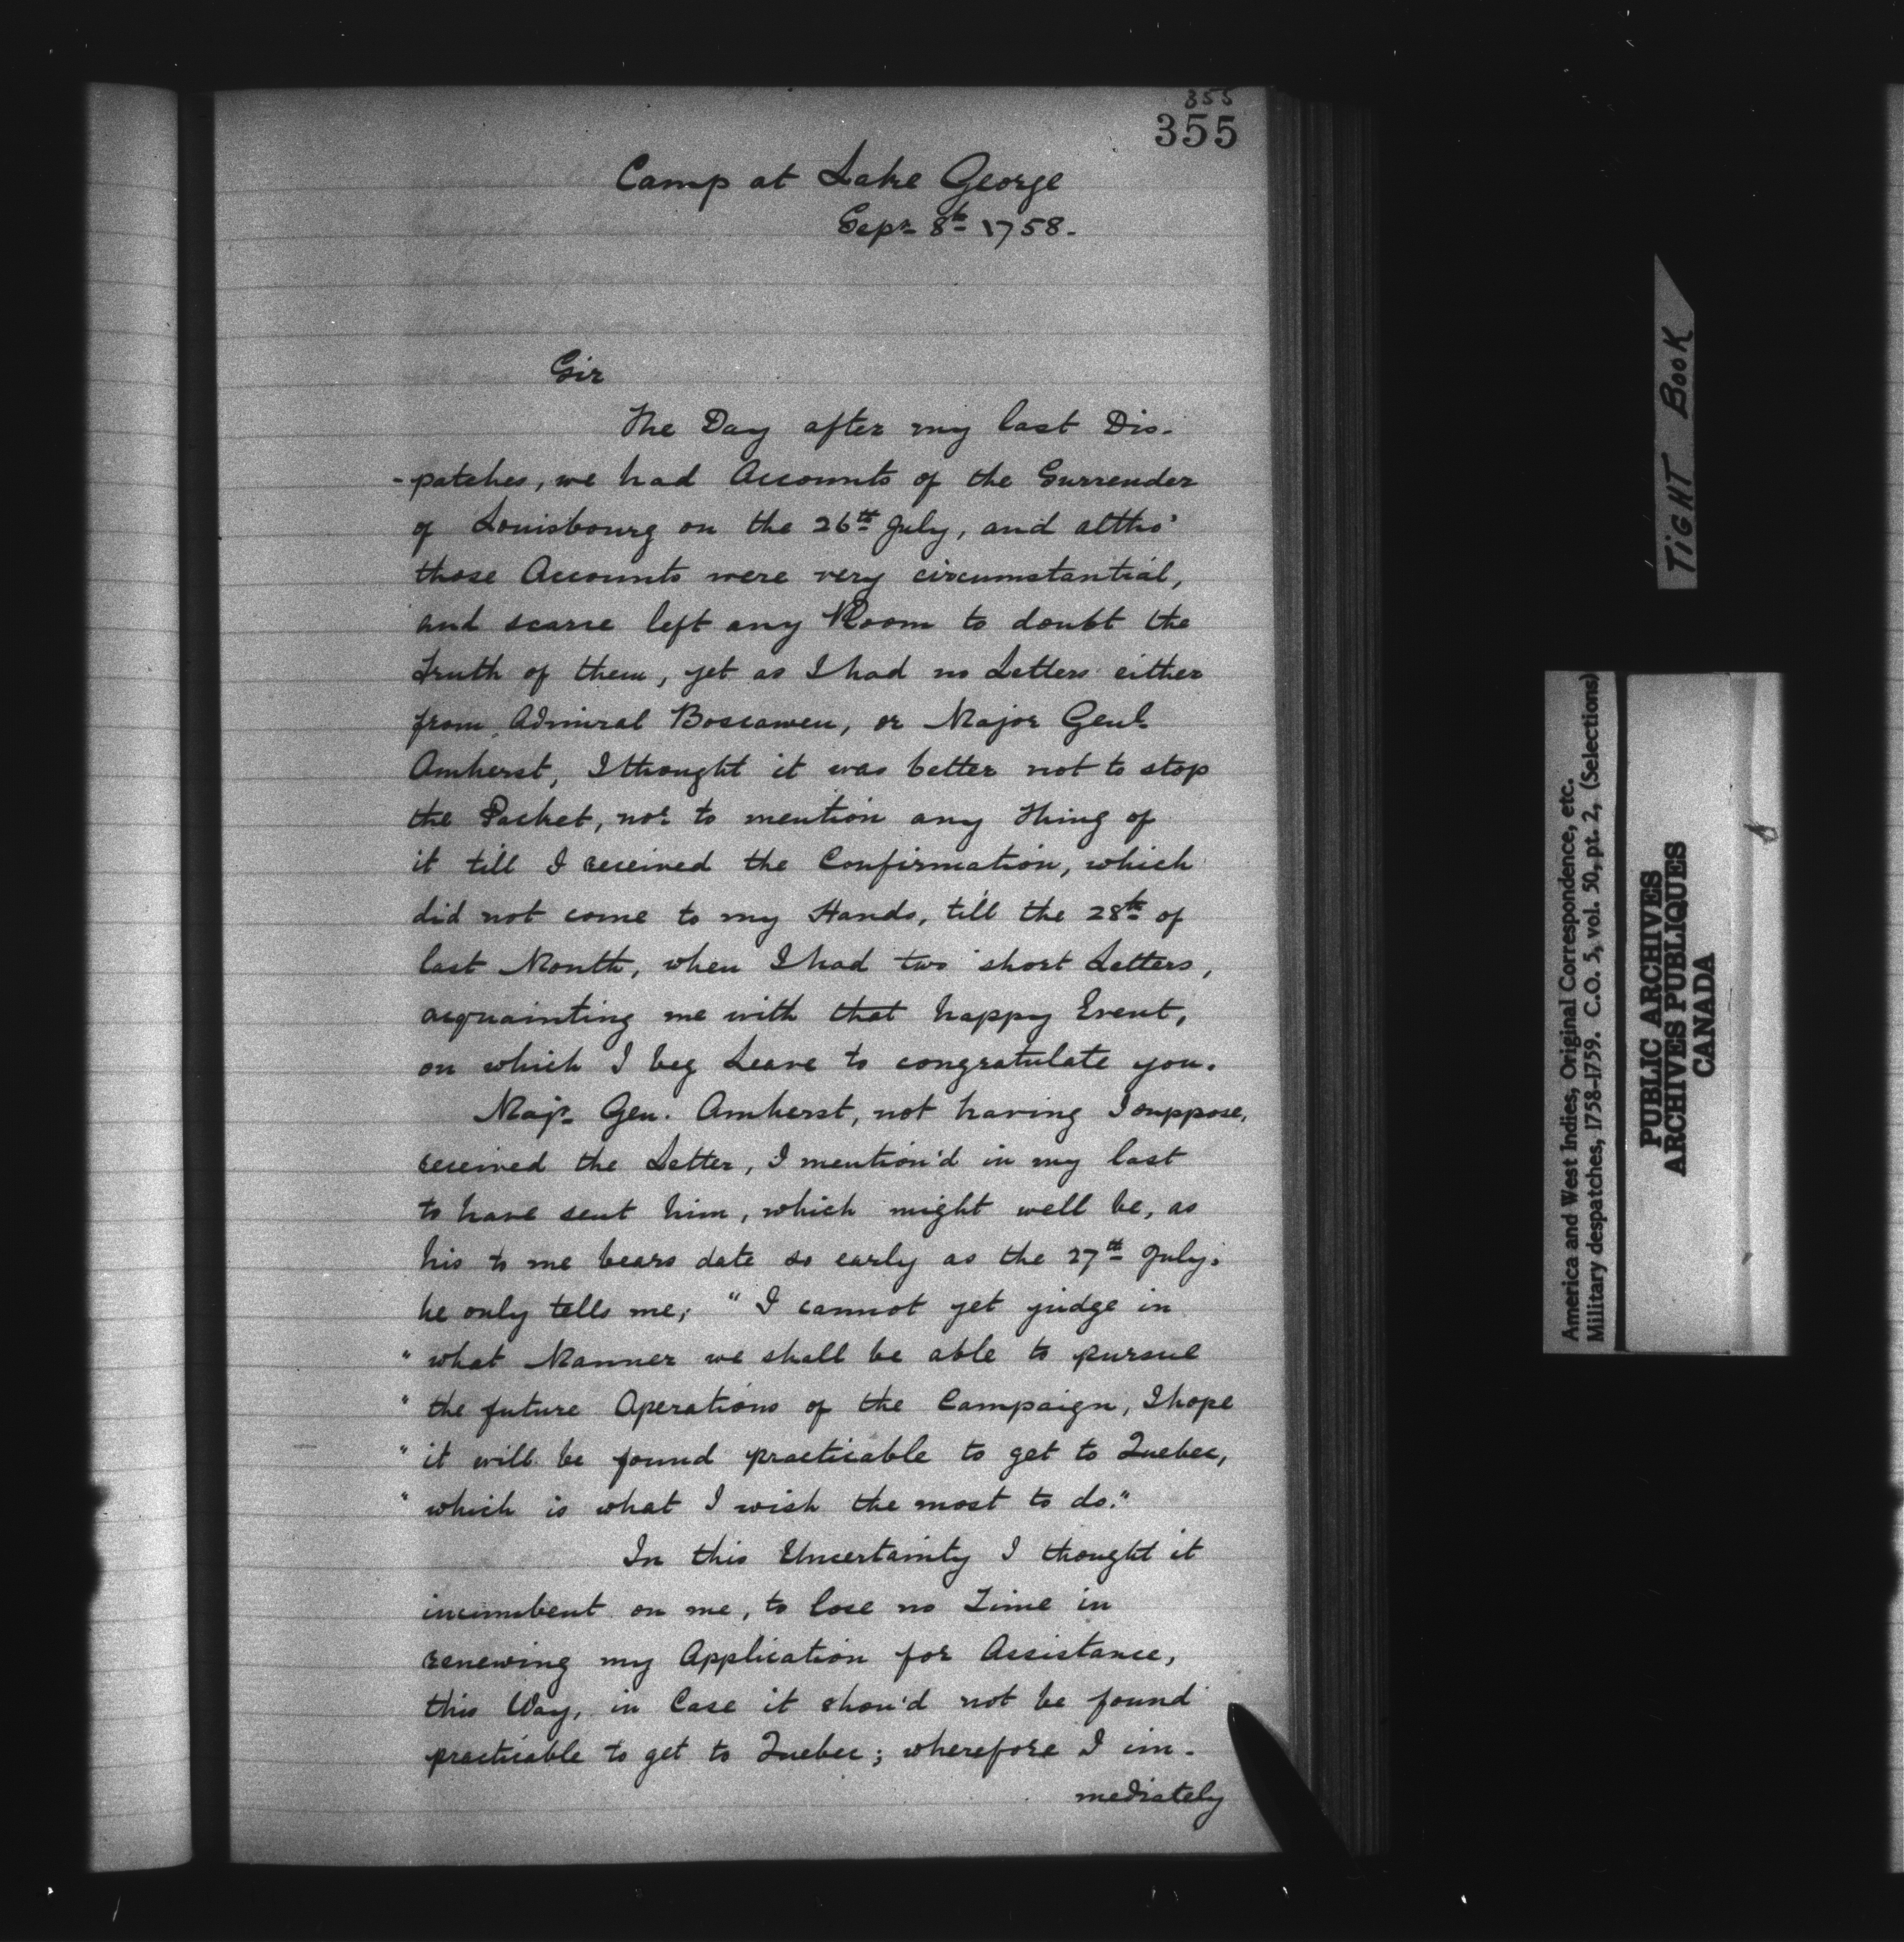 355
355
Camp at Lake George
Sepr 8th 1758.
Sir
The Day after my last Dis-
-patches, we had Accounts of the Surrender
of Louisbourg on the 26th July, and altho'
those Accounts were very circumstantial,
and scarce left any Room to doubt the
Truth of them, yet as I had no Letters either
from Admiral Boscawen, or Major Genl
Amherst, I thought it was better not to stop
the Packet, nor to mention any Thing of
it till I received the Confirmation, which
did not come to my Hands, till the 28th of
last Month, when I had two short Letters,
acquainting me with that happy Event,
on which I beg Leave to congratulate you.
Majr Gen. Amherst, not having I suppose,
received the Letter, I mention'd in my last
to have sent him, which might well be, as
his to me bears date so early as the 27th July.
he only tells me; "I cannot yet judge in
" what Manner we shall be able to pursue
" the future Operations of the Campaign, I hope
" it will be found practicable to get to Quebec,
" which is what I wish the most to do."
In this Uncertainty I thought it
incumbent on me, to lose no Time in
renewing my Application for Assistance,
this Way, in Case it shou'd not be found
practicable to get to Quebec; wherefore I im-
mediately
TIGHT BOOK
America and West Indies, Original Correspondence, etc.
Military despatches, 1758-1759. C.O. 5, vol. 50, pt. 2, (Selections)
PUBLIC ARCHIVES
ARCHIVES PUBLIQUES
CANADA